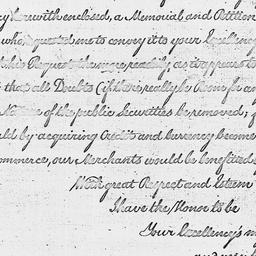 herewith enclosed, a Memorial and Petition
who requested me to convey it to your Excellency
this Request the more readily, as it appears to
that all Doubts (if there really be Room for any
Nature of the public Securities be removed,
by acquiring Credit and Currency become
commerce, our Merchants would be benefited
With great Respect and Esteem
I have the Honor to be
Your Excellency's m